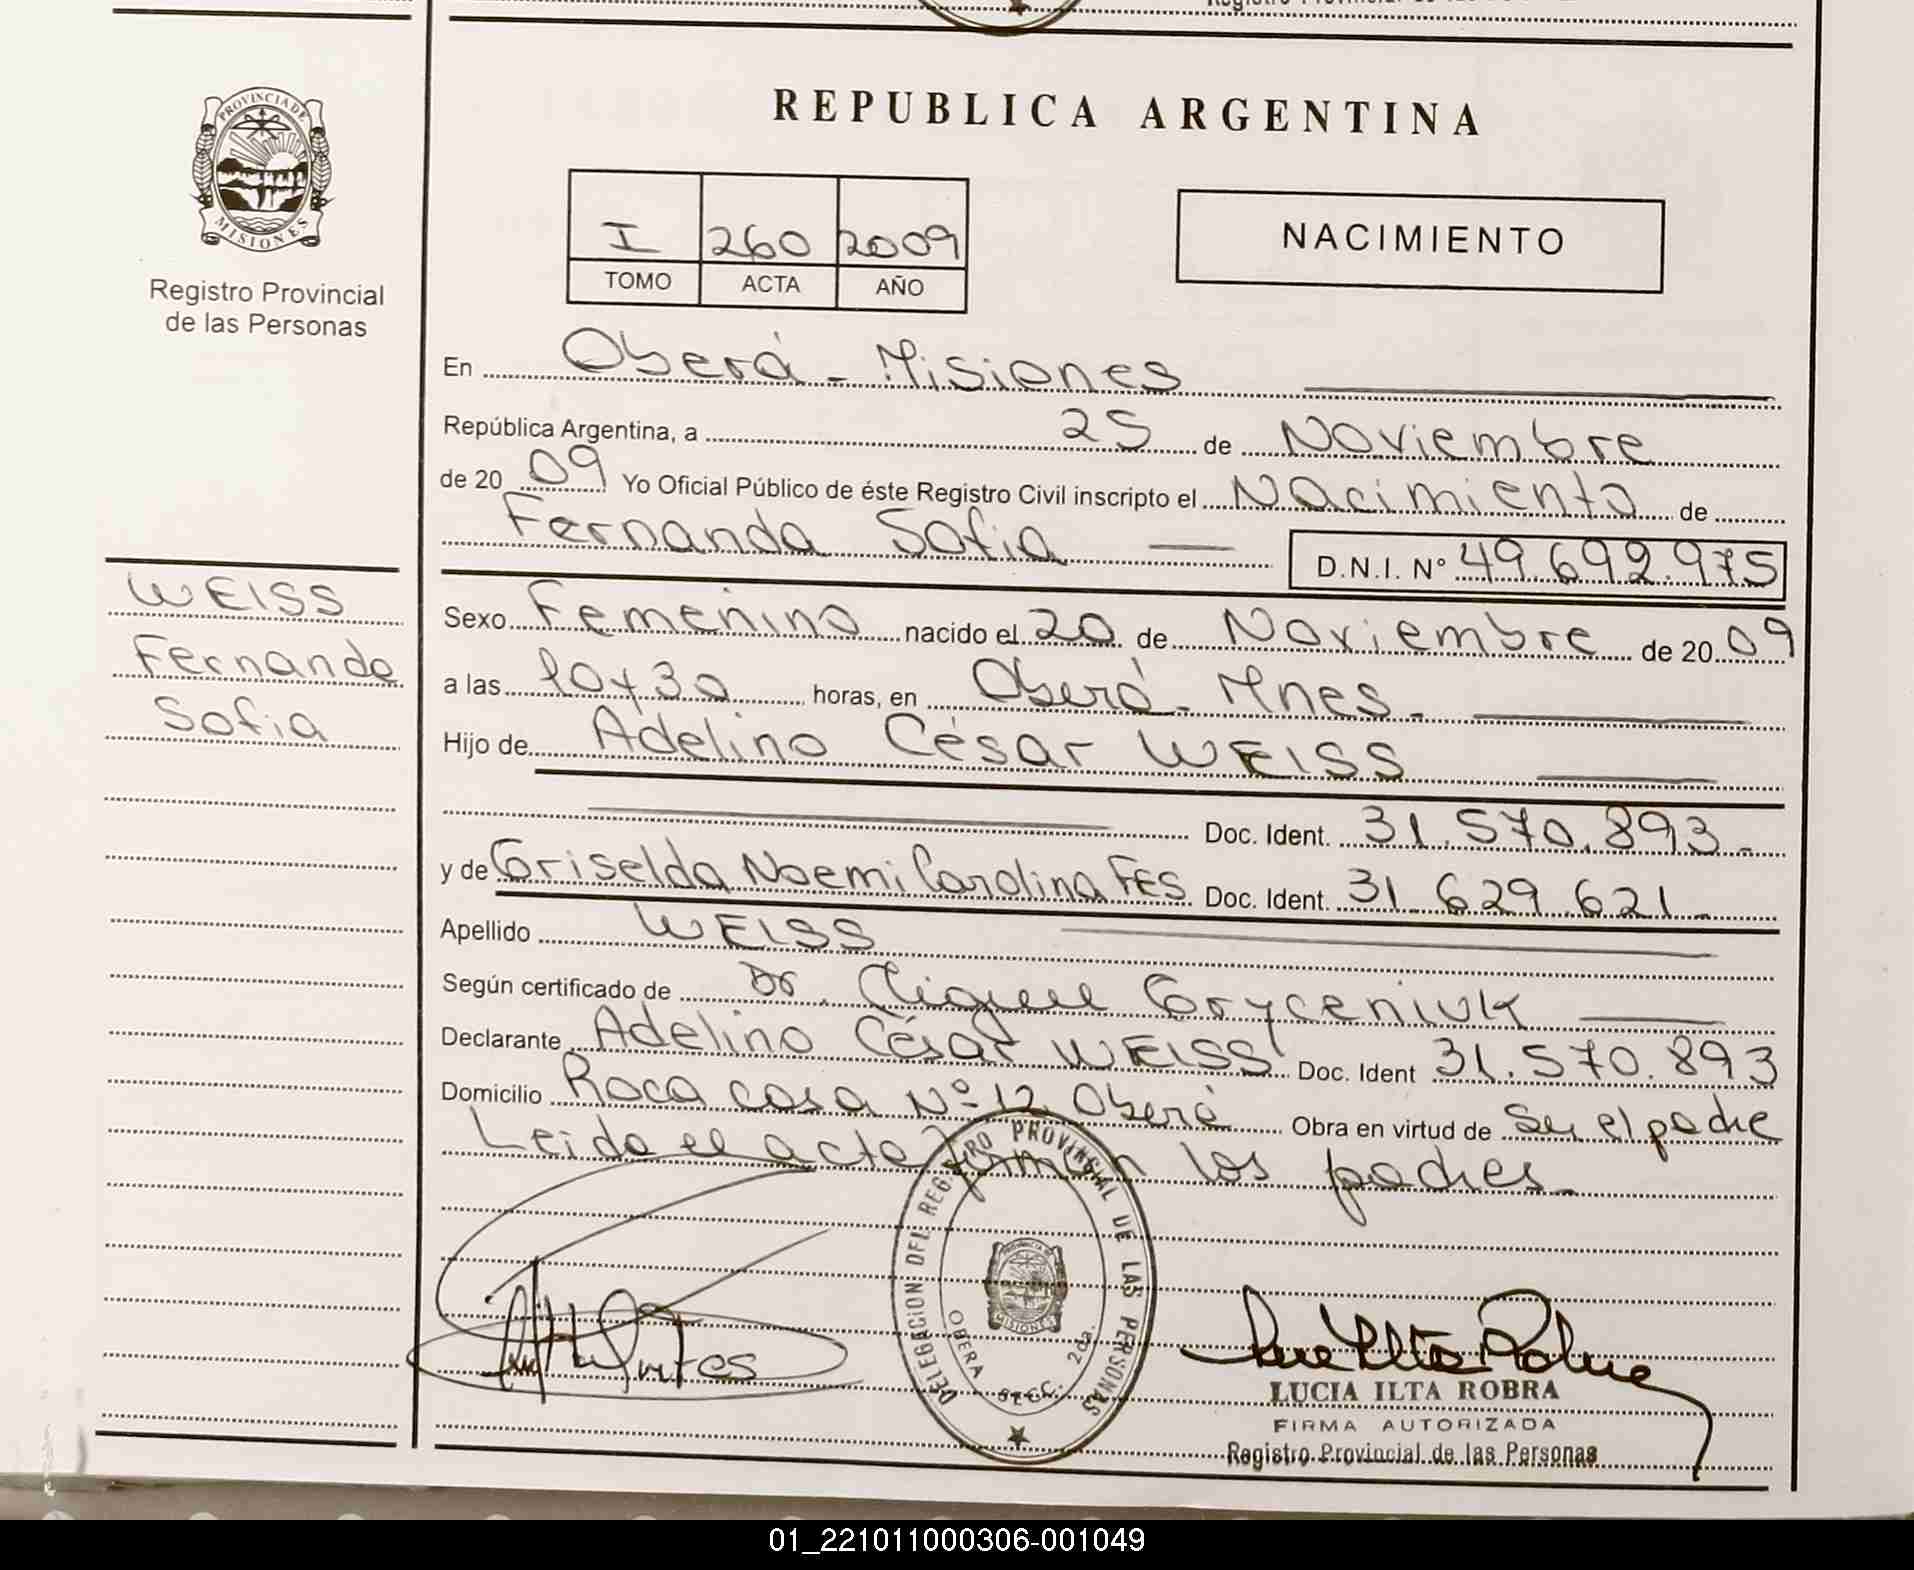 Registro Provincial de las Personas
REPUBLICA ARGENTINA
PROVINCIA DE
MISIONES
Registro Provincial
de las Personas
I 260 2009
TOMO ACTA AÑO
NACIMIENTO
En Oberá - Misiones
República Argentina, a 25 de Noviembre
de 20 09 Yo Oficial Público de éste Registro Civil inscripto el Nacimiento de
Fernanda Sofia D.N.I. Nº 49.692.975
WEISS
Fernanda
Sofia
Sexo Femenino nacido el 20 de Noviembre de 20 09
a las 10 y 30 horas, en Oberá - Mnes.
Hijo de Adelino César WEISS
Doc. Ident. 31.570.893.-
y de Griselda Noemi Carolina FES Doc. Ident. 31.629.621.-
Apellido WEISS
Según certificado de Dr. Miguel Gryceniuk
Declarante Adelino César WEISS Doc. Ident 31.570.893
Domicilio Roca casa Nº 12 Oberá Obra en virtud de Ser el padre
Leida el acta firman los padres.
DELEGACION DEL REGISTRO PROVINCIAL DE LAS PERSONAS
OBERA SECC. 2da.
PROVINCIA DE
MISIONES
LUCIA ILTA ROBRA
FIRMA AUTORIZADA
Registro Provincial de las Personas
01_221011000306-001049